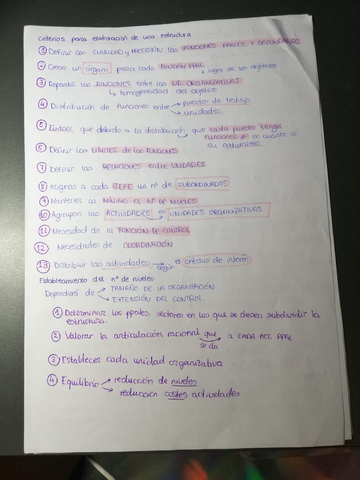 Criterios para elaboración de una estructura
① Definir con CLARIDAD y PRECISIÓN las FUNCIONES PPALES Y SECUNDARIAS
② Crear un órgano para cada FUNCIÓN PPAL → logro de los objetivos
③ Repartir las FUNCIONES entre las UD. ORGANIZATIVAS
↳ homogeneidad del objetivo
④ Distribución de funciones entre → puestos de trabajo
→ unidades
⑤ Evitar que debido a la distribución que cada puesto tenga
funciones en cuanto a
su naturaleza.
⑥ Definir los LÍMITES de las FUNCIONES
⑦ Definir las RELACIONES entre UNIDADES
⑧ Asignar a cada JEFE un nº de SUBORDINADOS
⑨ Mantener al MÍNIMO EL Nº DE NIVELES
⑩ Agrupar las ACTIVIDADES en UNIDADES ORGANIZATIVAS
⑪ Necesidad de la FUNCIÓN DE CONTROL
⑫ Necesidades de COORDINACIÓN
⑬ Distribuir las actividades → según el criterio de
Establecimiento del nº de niveles
Dependerá de → TAMAÑO DE LA ORGANIZACIÓN
→ EXTENSIÓN DEL CONTROL
① Determinar los ppales. sectores en los que se desea subdividir la
estructura.
② Valorar la articulación racional que → A CADA ACT. PPAL
se da
③ Establecer cada unidad organizativa
④ Equilibrio → reducción de niveles
→ reducción costes actividades